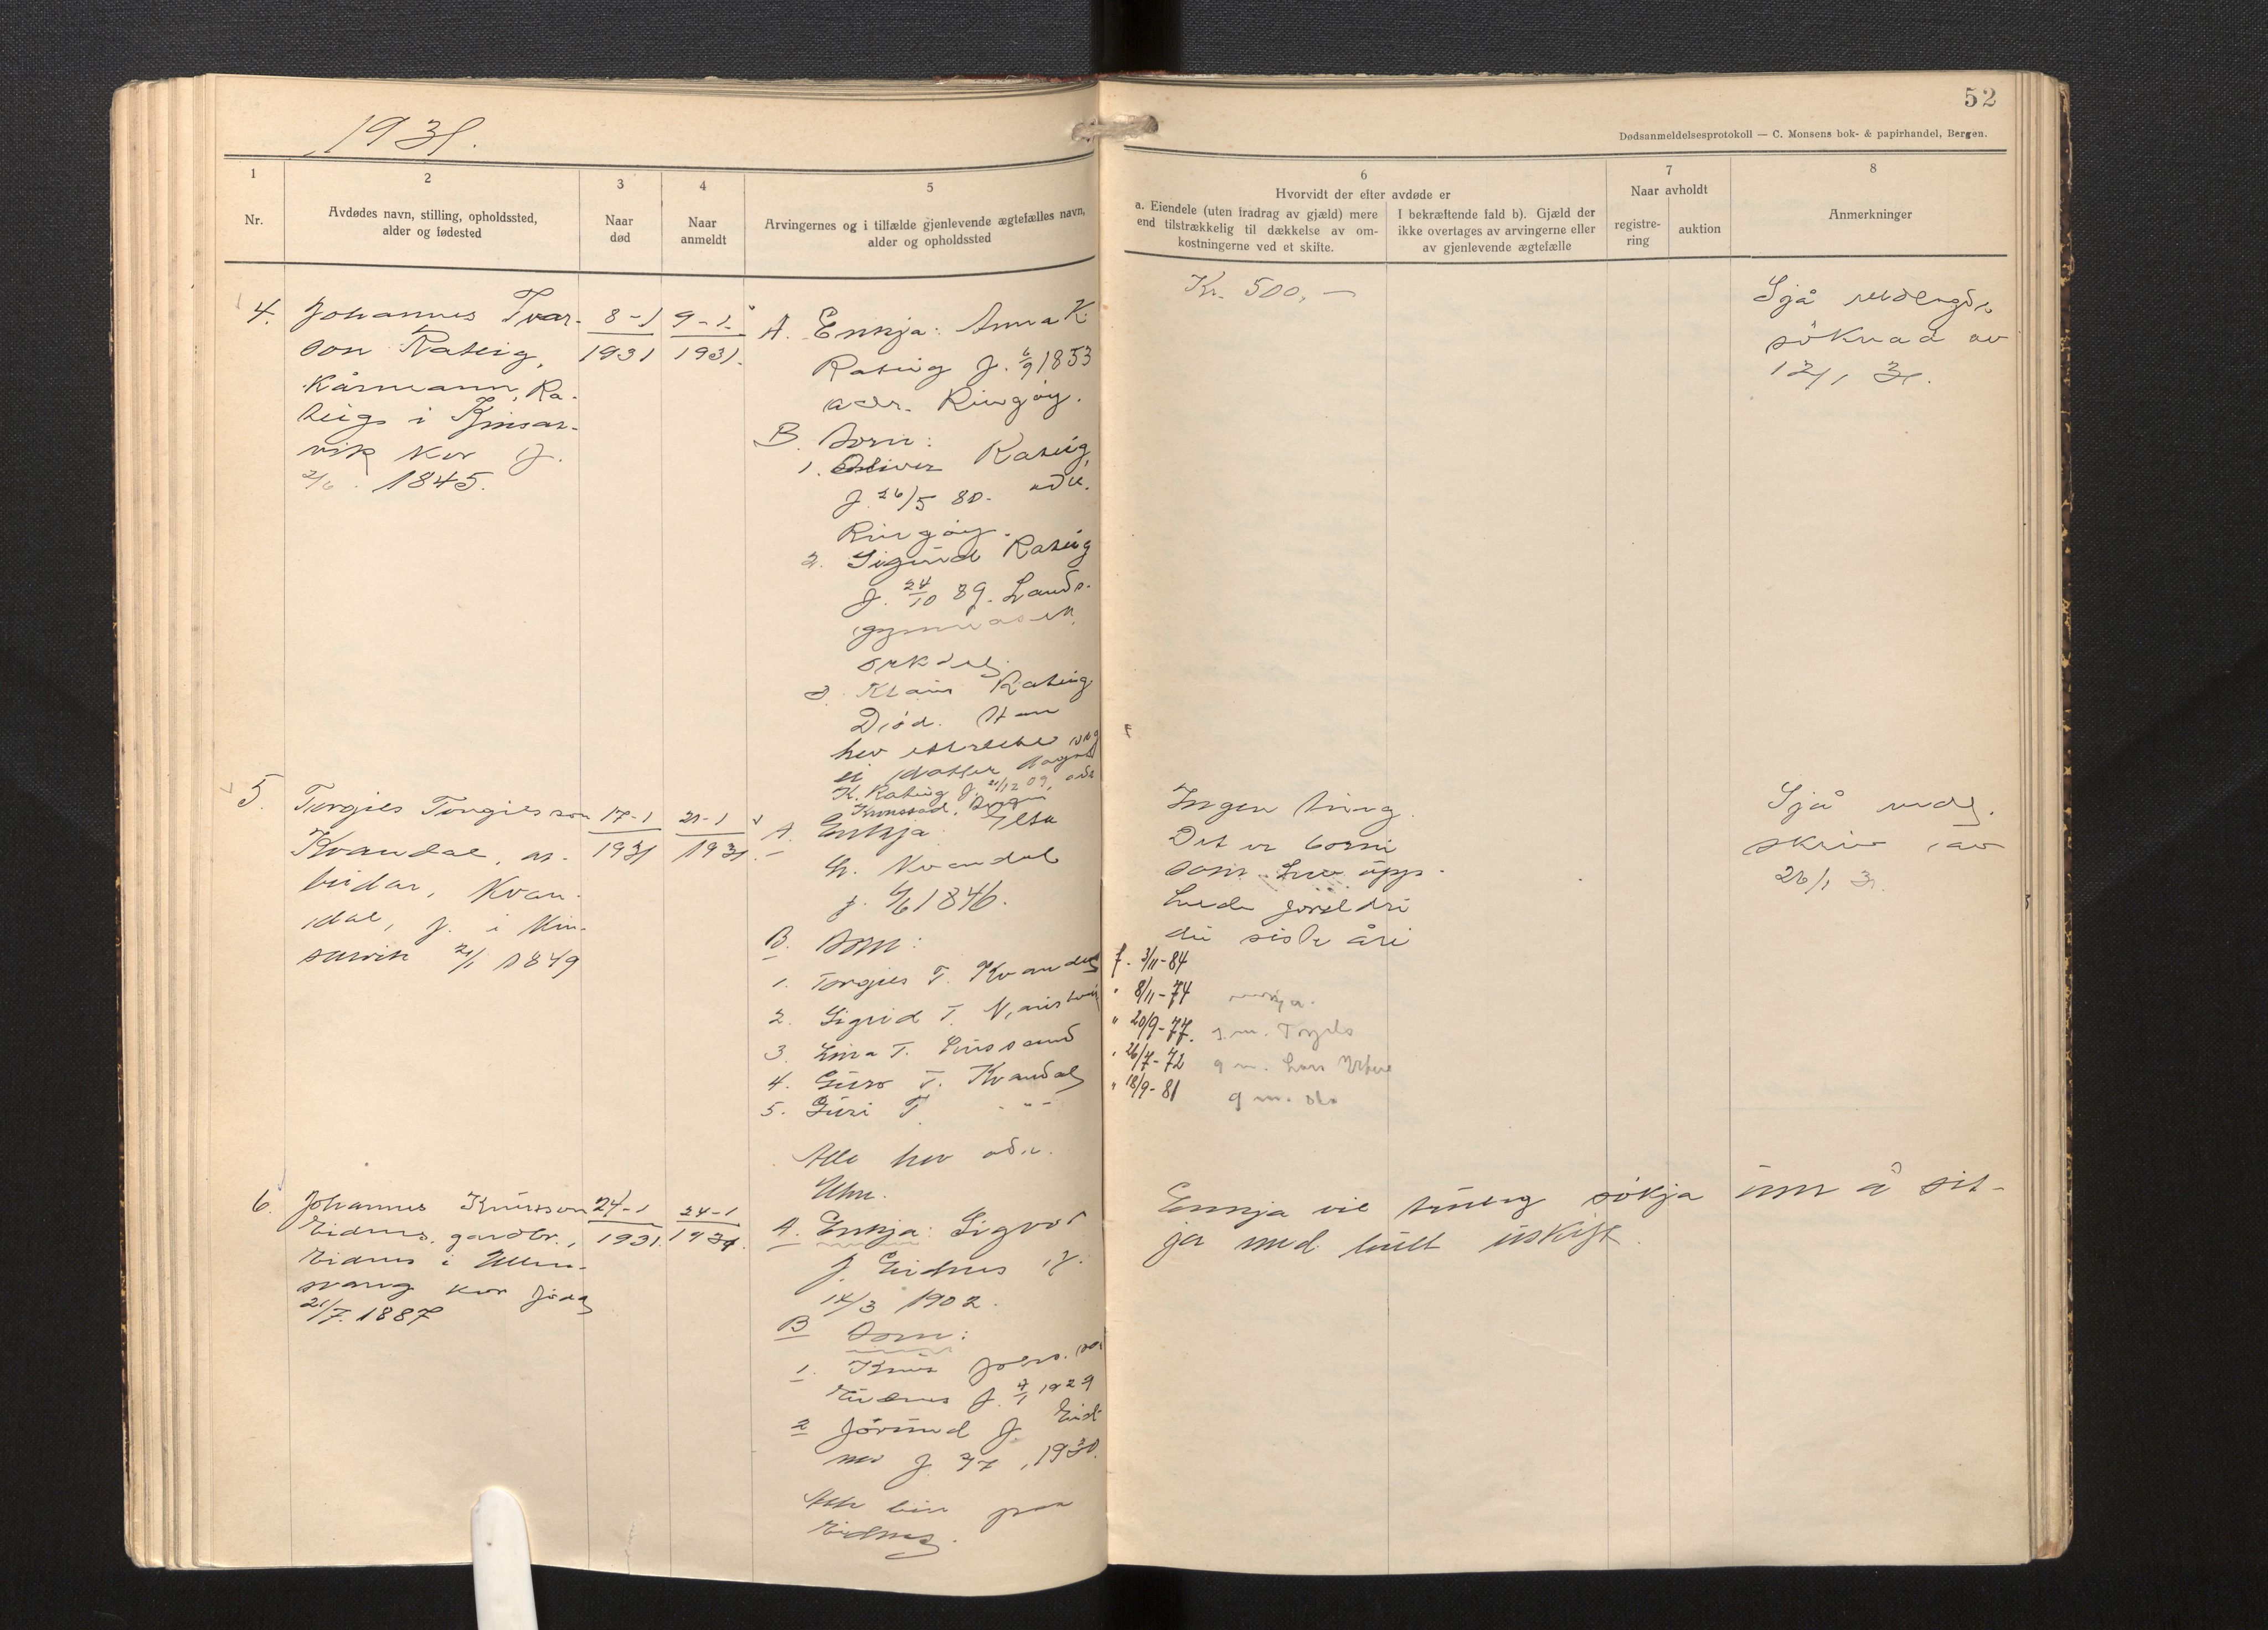 1931.
52
Dødsanmeldelsesprotokoll — C. Monsens bok- & papirhandel, Bergen.
1
Nr.
2
Avdødes navn, stilling, opholdssted,
alder og fødested
3
Naar
død
4
Naar
anmeldt
5
Arvingernes og i tilfælde gjenlevende ægtefælles navn,
alder og opholdssted
6
Hvorvidt der efter avdøde er
a. Eiendele (uten fradrag av gjæld) mere
end tilstrækkelig til dækkelse av om-
kostningerne ved et skifte.
I bekræftende fald b). Gjæld der
ikke overtages av arvingerne eller
av gjenlevende ægtefælle
7
Naar avholdt
registre-
ring
auktion
8
Anmerkninger
4.
Johannes Ivar-
son Rateig,
Kårmann, Ra-
teig i Kinsar-
vik kor f.
2/6. 1845.
8-1
1931
9-1
1931.
A. Enkja: Anna K.
Rateig f. 6/9 1853
adr. Ringøy.
B. Born:
1. Oliver Rateig,
f. 26/5 80. adr.
Ringøy.
2. Sigurd Rateig
f. 24/10 89. Lands-
gymnaset,
Orkdal
3. Rateig
Død. Han
hev
ei dotter
K. Rateig f. 21/12 09, adr
Kronstad, Bergen
Kr. 500,—
Sjå
søknad av
12/1 31.
5.
Torgils Torgilsson
Kvandal, ar-
beidar, Kvan-
dal, f. i Kin-
sarvik 21/1 1849
17-1
1931
21-1
1931.
A. Enkja
G. Kvandal
f. 6/6 1846.
B. Born:
1. Torgils T. Kvandal
2. Sigrid T.
3. T.
4. Guro T. Kvandal
5. Guri T. - " -
Alle hev adr.
Utne.
Ingen ting.
Det er borni
som hev upp-
helde foreldri
dei siste åri
f. 3/11-84
" 8/11-74 enkja.
" 20/9-77. g.m.
" 26/7-72 g m. Lars
" 18/9-81 g m.
Sjå
skriv av
26/1 31.
6.
Johannes Knutsson
Eidnes, gardbr.,
Eidnes i Ullens-
vang kor fødd
21/7. 1887
24-1
1931.
24-1
1931.
A. Enkja: Sigvor
J. Eidnes f.
14/3 1902.
B Born:
1. Knut Johs.son
Eidnes f. 4/1 1929
2 Jørund J. Eid-
nes f. 1930.
Alle bur paa
Eidnes.
Enkja vil truleg søkja um å sit-
ja med buet uskift.